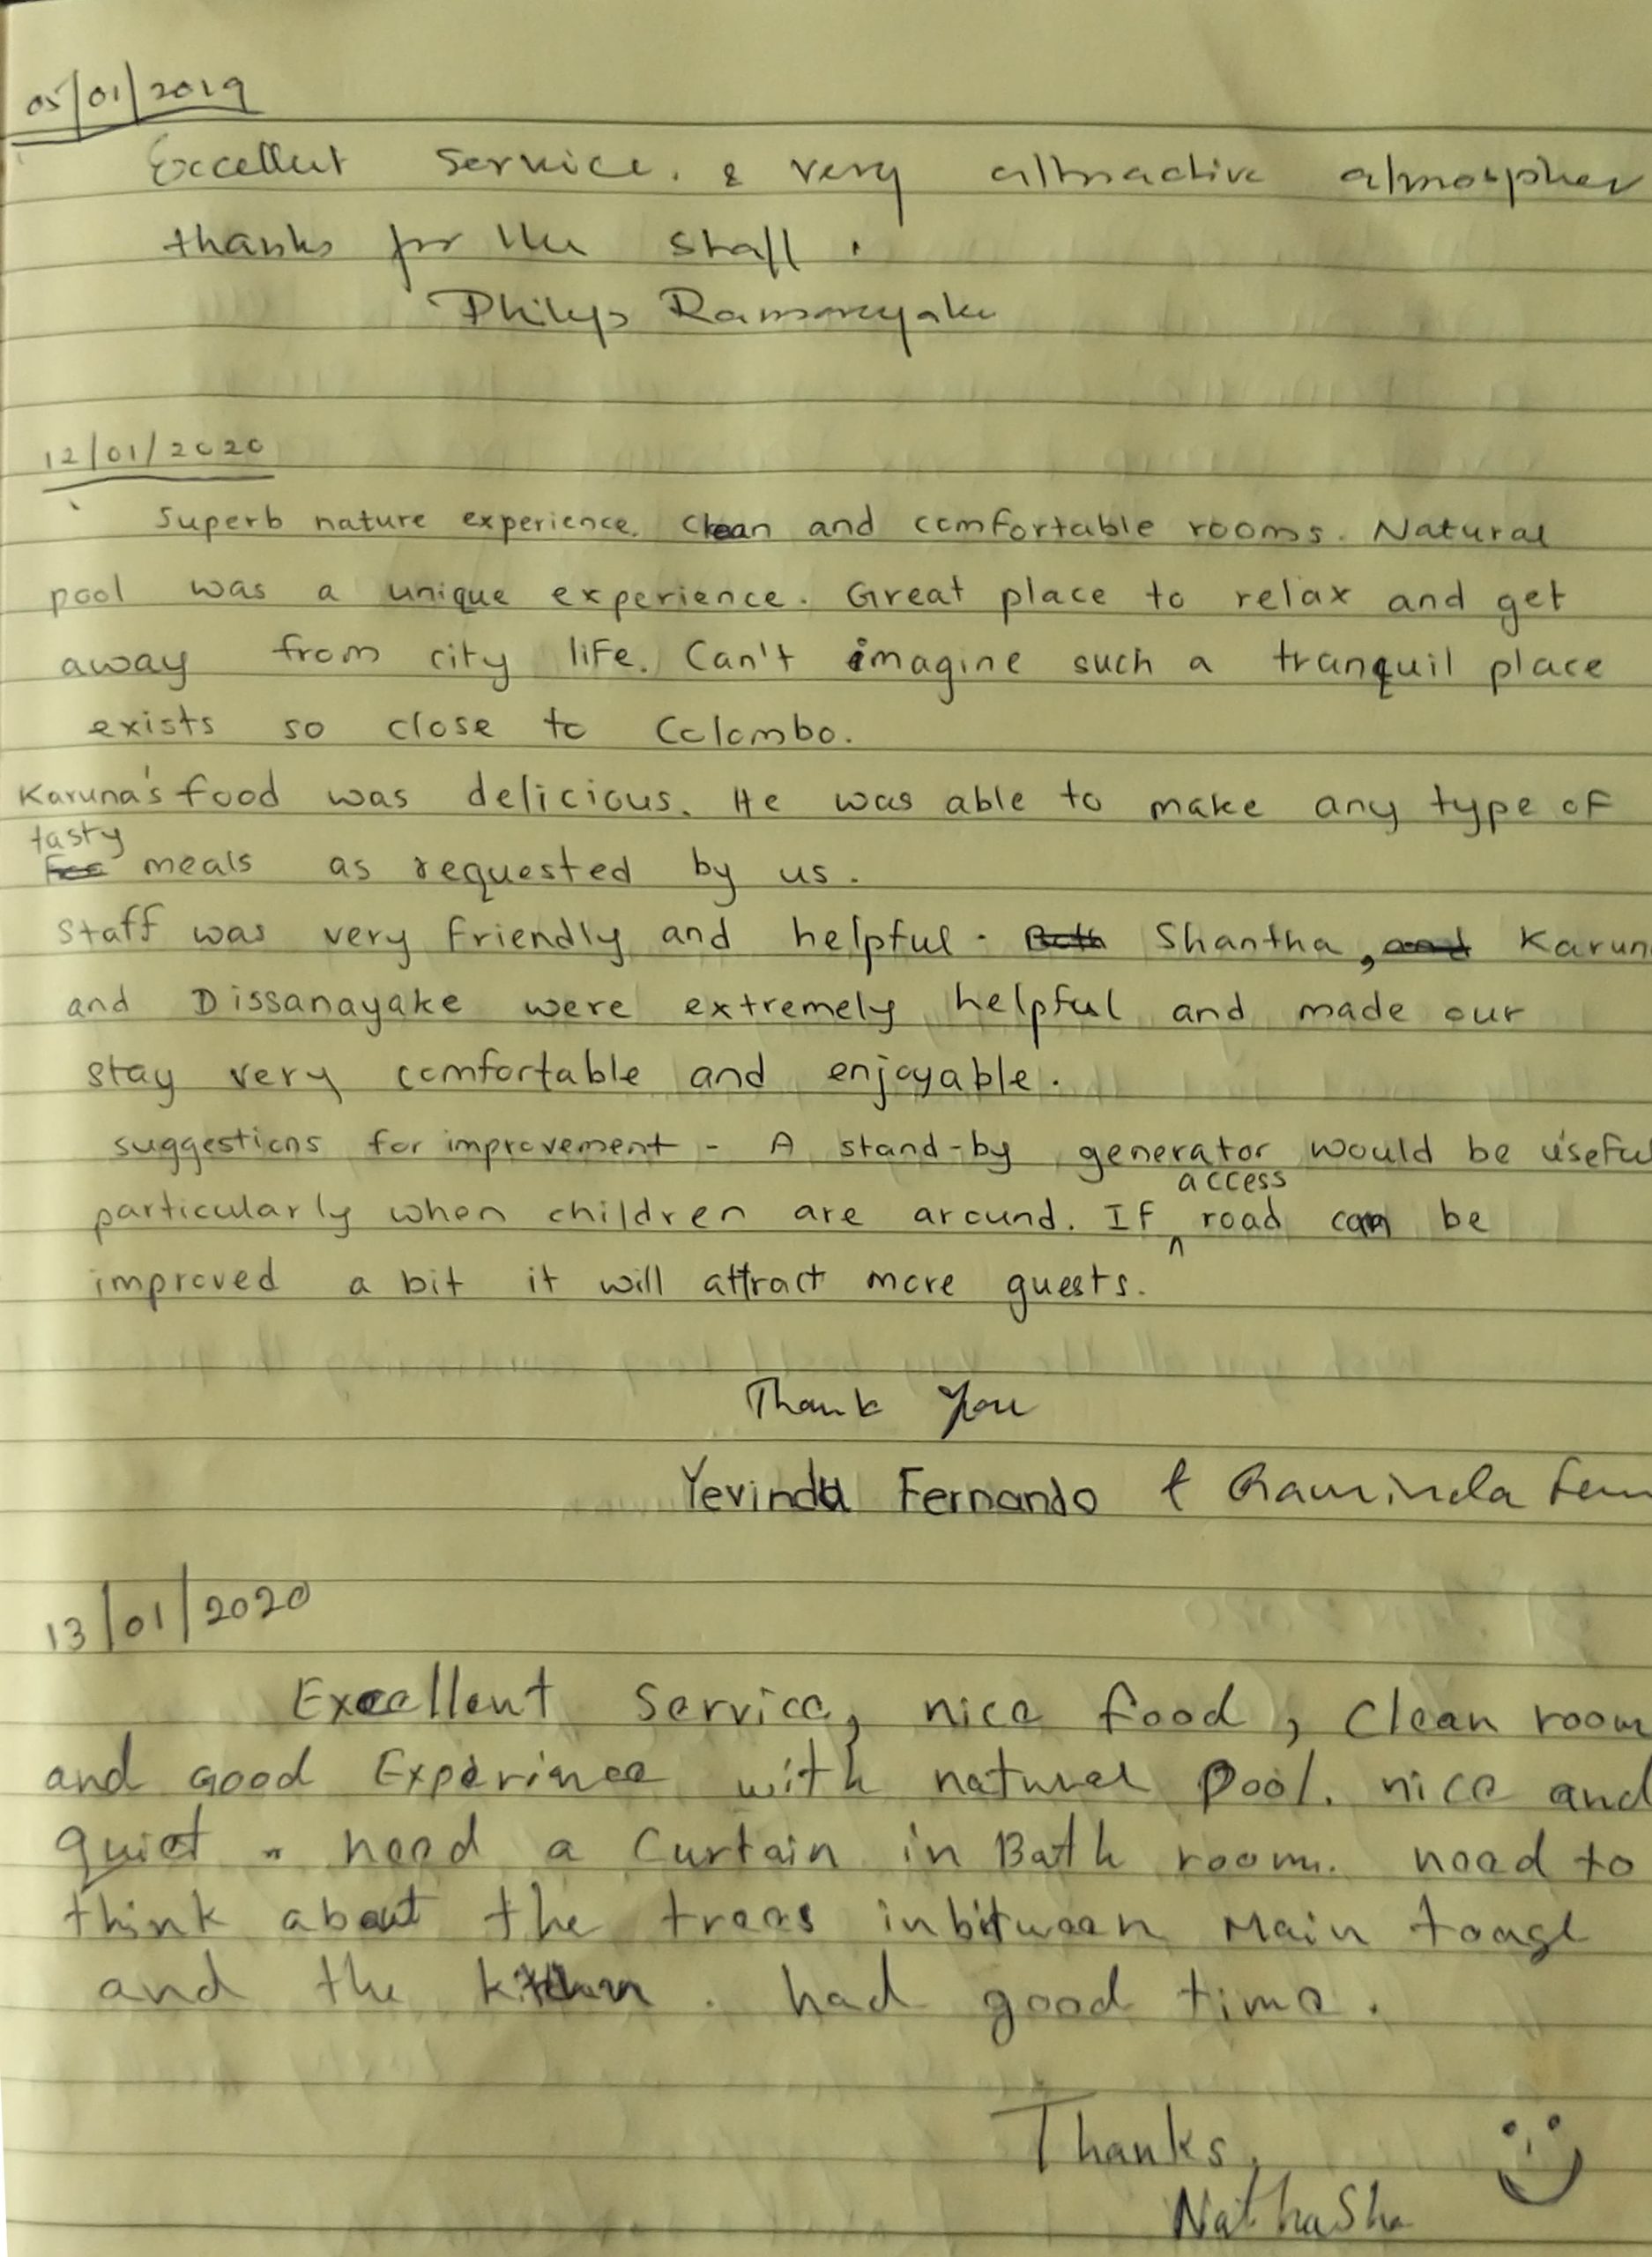 05/01/2019
Excellent service. & very attractive atmospher
thanks for the staff.
Philips Ramanayake
12/01/2020
Superb nature experience. Clean and comfortable rooms. Natural
pool was a unique experience. Great place to relax and get
away from city life. Can't imagine such a tranquil place
exists so close to Colombo.
Karuna's food was delicious. He was able to make any type of
tasty
meals as requested by us.
Staff was very friendly and helpful. Both Shantha, and Karun
and Dissanayake were extremely helpful and made our
stay very comfortable and enjoyable.
suggestions for improvement - A stand-by generator would be useful
access
particularly when children are around. If ^ road can be
improved a bit it will attract more guests.
Thank you
Yevindu Fernando &
13/01/2020
Excellent Service, nice food, Clean room
and Good Experince with natural pool. nice and
quiet. need a Curtain in Bath room. need to
think about the trees inbitween Main
and the kitchen. had good time.
Thanks,
NathaSha